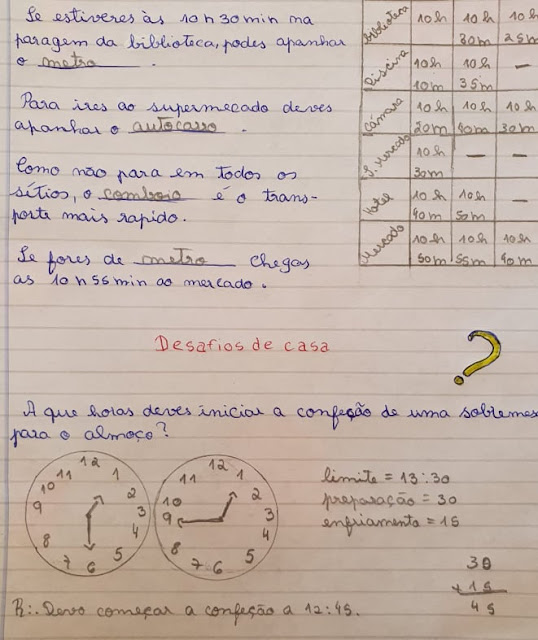 Se estiveres às 10 h 30 min na
paragem da biblioteca, podes apanhar
o metro.
Para ires ao supermecado deves
apanhar o autocarro.
Como não para em todos os
sítios, o comboio é o trans-
porte mais rapido.
Se fores de metro chegas
as 10 h 55 min ao mercado.
Biblioteca 10h 10h 30m 10h 25m
Piscina 10h 10m 10h 35m —
Câmara 10h 20m 10h 40m 10h 30m
S. Mercado 10h 30m — —
Hotel 10h 40m 10h 50m —
Mercado 10h 50m 10h 55m 10h 40m
Desafios de casa
?
A que horas deves iniciar a confeção de uma sobremes
para o almoço?
12 1 2 3 4 5 6 7 8 9 10 11
12 1 2 3 4 5 6 7 8 9 10 11
limite = 13:30
preparação = 30
enfriamento = 15
30
+ 15
45
R:. Devo começar a confeção a 12:45.